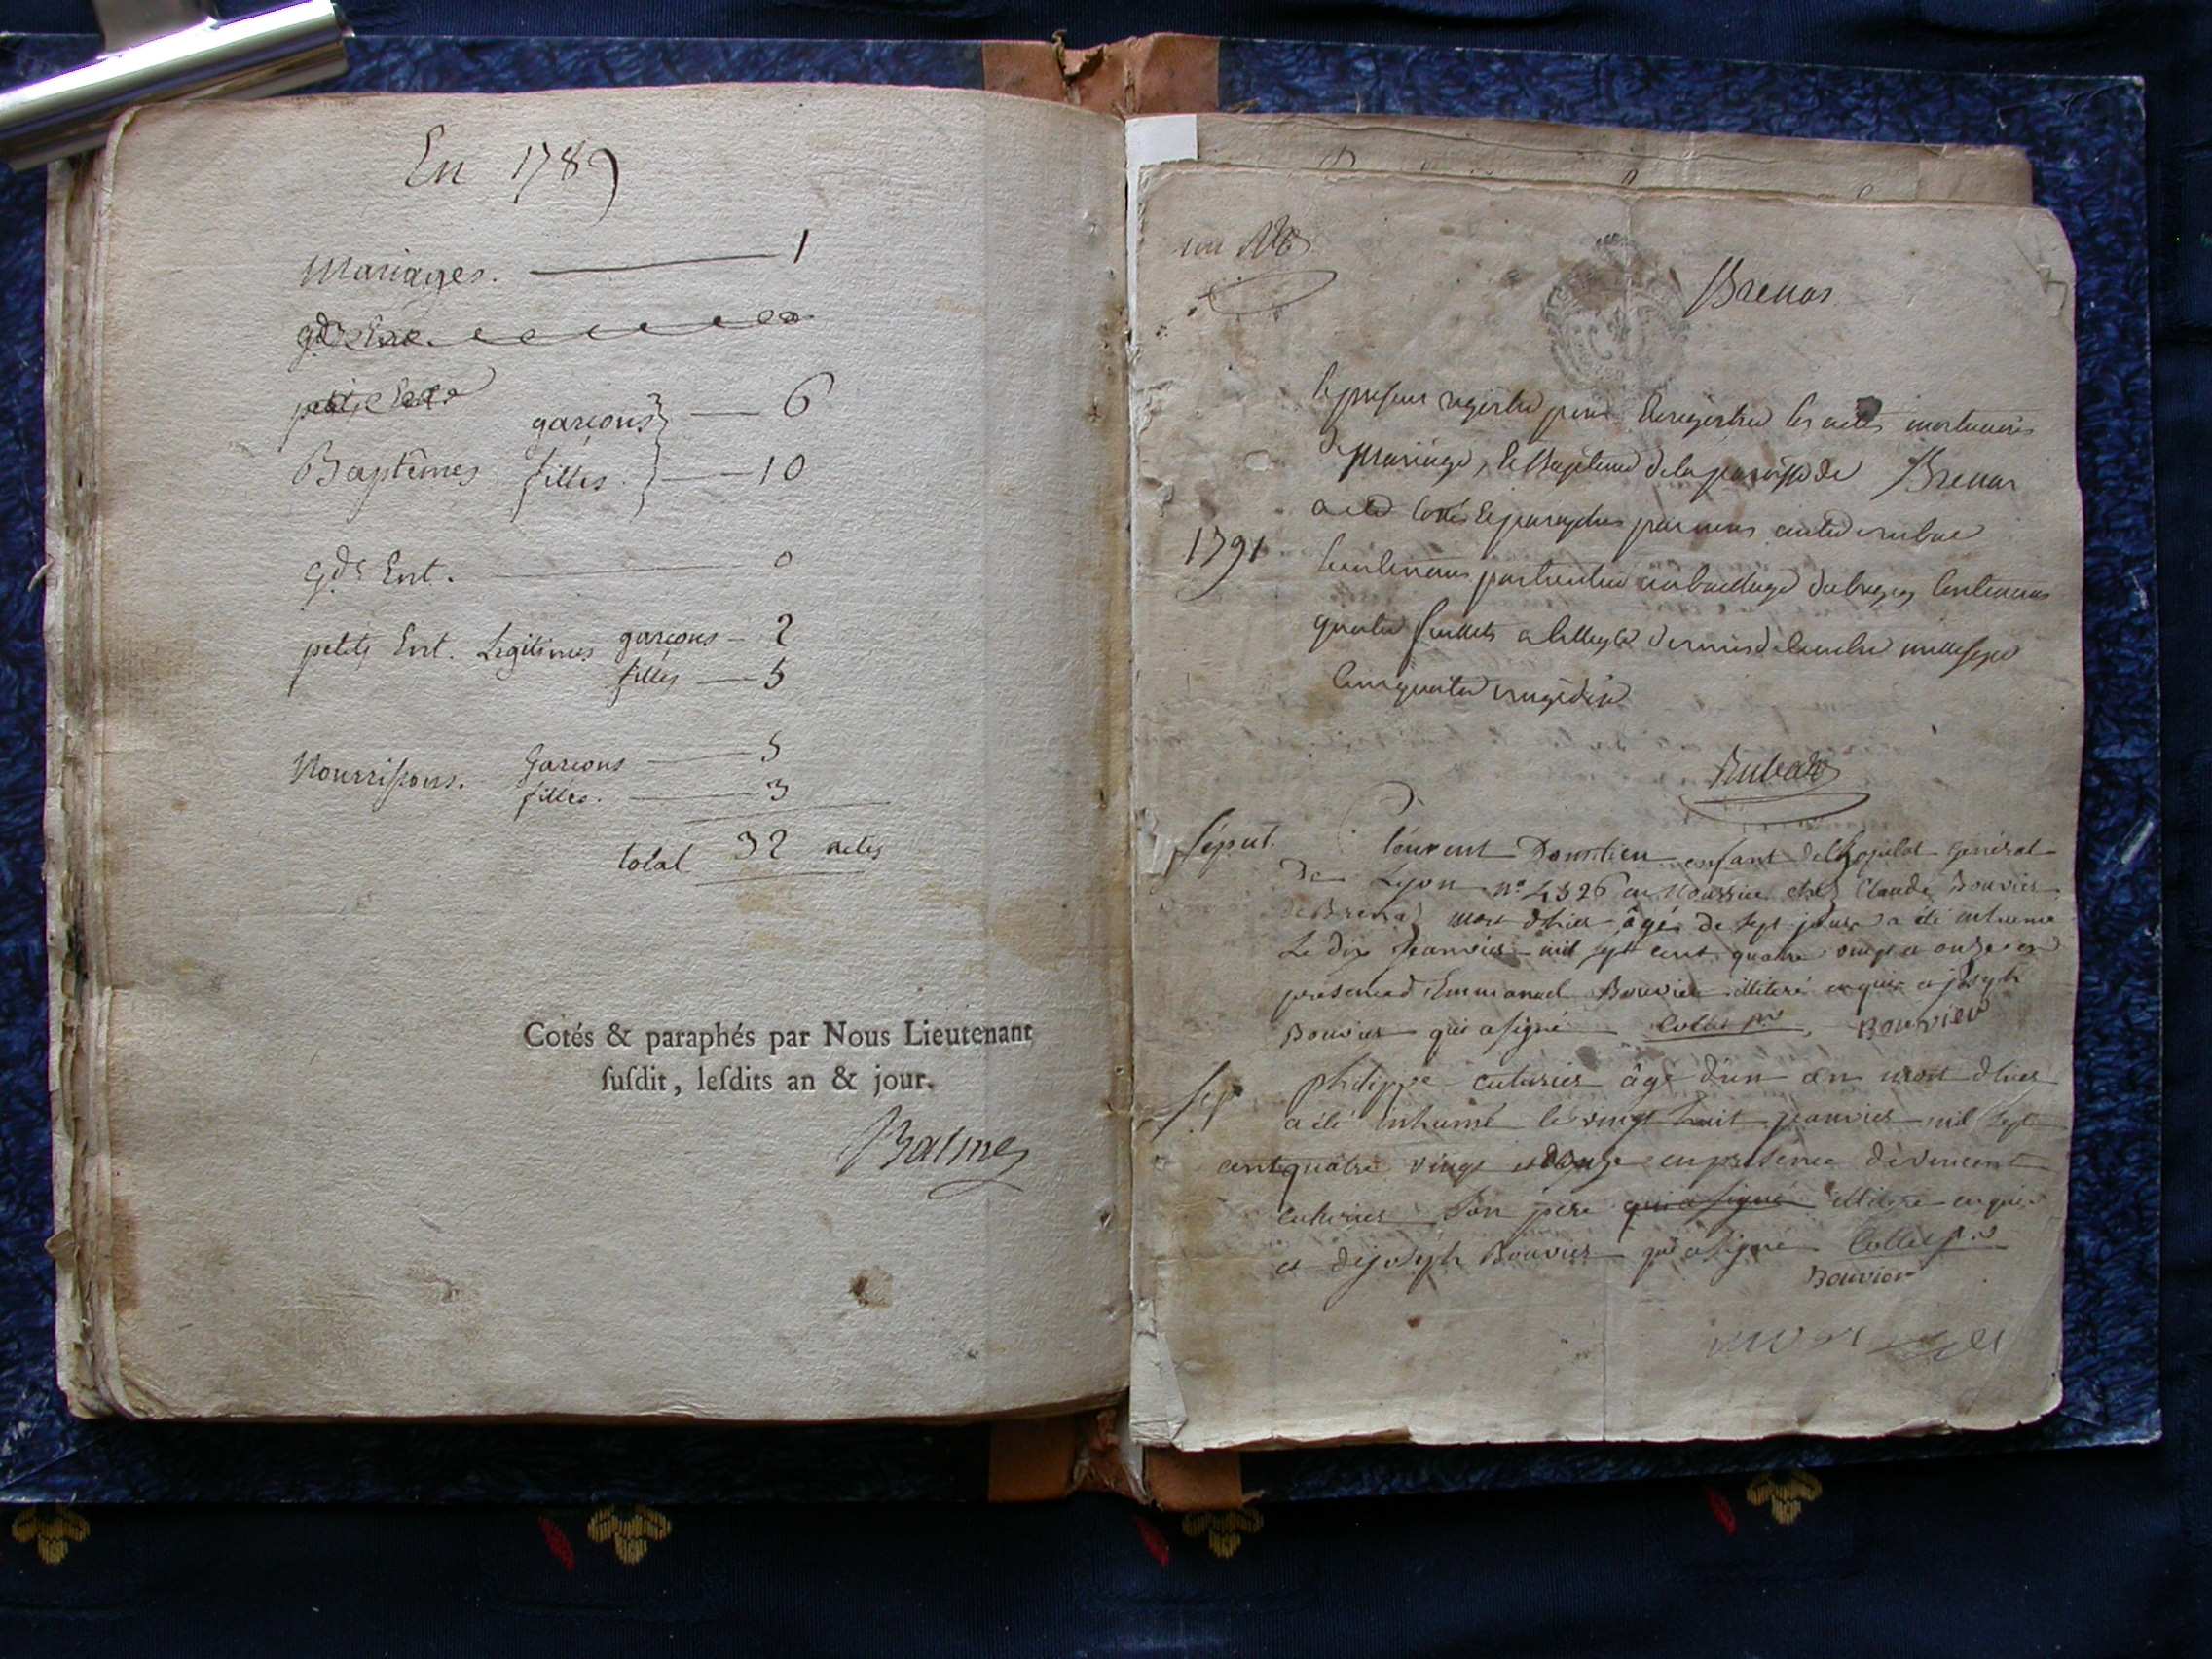 En 1789
Mariages. 1
gds Ent.
petits Ent.
garçons 6
Baptêmes filles 10
Gds Ent. 0
petits Ent. Légitimes garçons 2
filles 5
Nourrissons. Garçons 5
filles. 3
total 32 actes
Cotés & paraphés par Nous Lieutenant
ſuſdit, leſdits an & jour.
Balme
Brenas
le present registre pour Enregistrer les actes mortuaires
de Mariage, et Baptême de la paroisse de Brenas
a été cottés et paraphés par nous
1791
lieutenant particulier au bailliage contenant
quatre feuillets
Sépult. Laurent Domitien enfant de l'hopital Général
De Lyon n° 4326 en Nourrice chez Claude Bouvier
de Brenas mort d'hier âgé de sept jours a été inhumé
Le dix Janvier mil sept cent quatre vingt et onze en
présence d'Emmanuel Bouvier illiteré enquis et joseph
Bouvier qui a signé Collet Bouvier
Sep philippe âgé d'un an mort d'hier
a été inhumé le vingt huit janvier mil sept
cent quatre vingt et onze en présence de vincent
son pere qui a signé illiteré enquis
et de joseph Bouvier qui a signé Collet
Bouvier